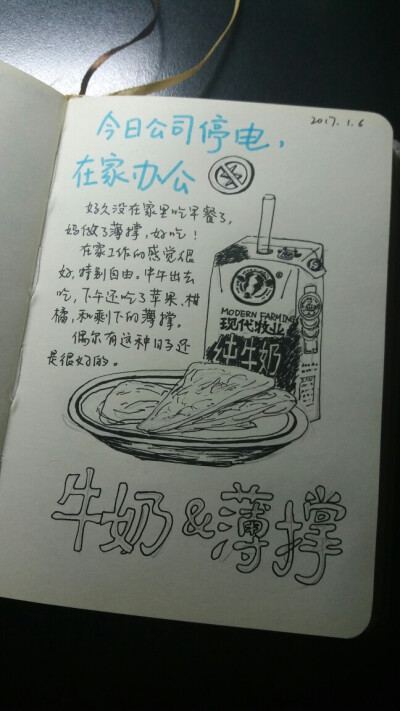 2017.1.6
今日公司停电,
在家办公
好久没在家里吃早餐了,
妈做了薄撑,好吃!
在家工作的感觉很
好,特别自由。中午出去
吃,下午还吃了苹果、柑
橘,和剩下的薄撑。
偶尔有这种日子还
是很好的。
MODERN FARMING
现代牧业
纯牛奶
牛奶&薄撑